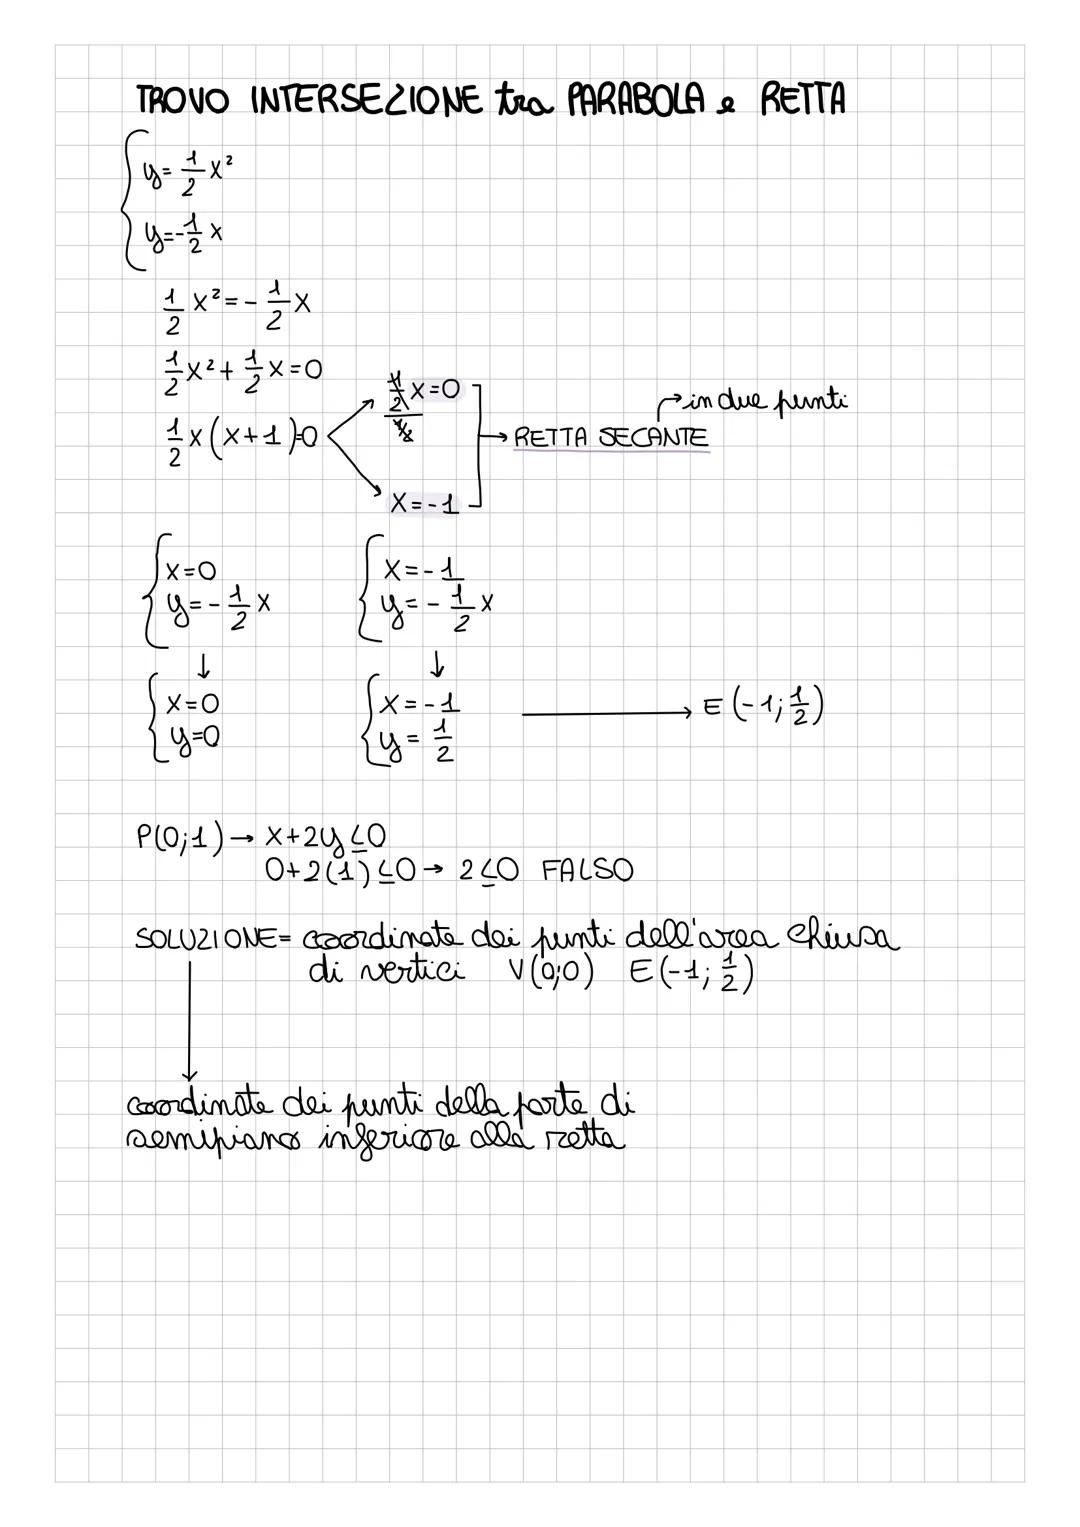 TROVO INTERSEZIONE tra PARABOLA e RETTA
y = 1/2 x²
y = -1/2 x
1/2 x² = - 1/2 x
1/2 x² + 1/2 x = 0
1/2 x (x+1) = 0
1/2 x = 0
x = -1
RETTA SECANTE → in due punti
x=0
y = - 1/2 x
x = -1
y = - 1/2 x
↓
x=0
y=0
↓
x = -1
y = 1/2
→ E (-1; 1/2)
P(0;1) → x+2y ≤ 0
0+2(1) ≤ 0 → 2 ≤ 0 FALSO
SOLUZIONE = coordinate dei punti dell'area chiusa
di vertici V(0;0) E(-1; 1/2)
coordinate dei punti della parte di
semipiano inferiore alla retta